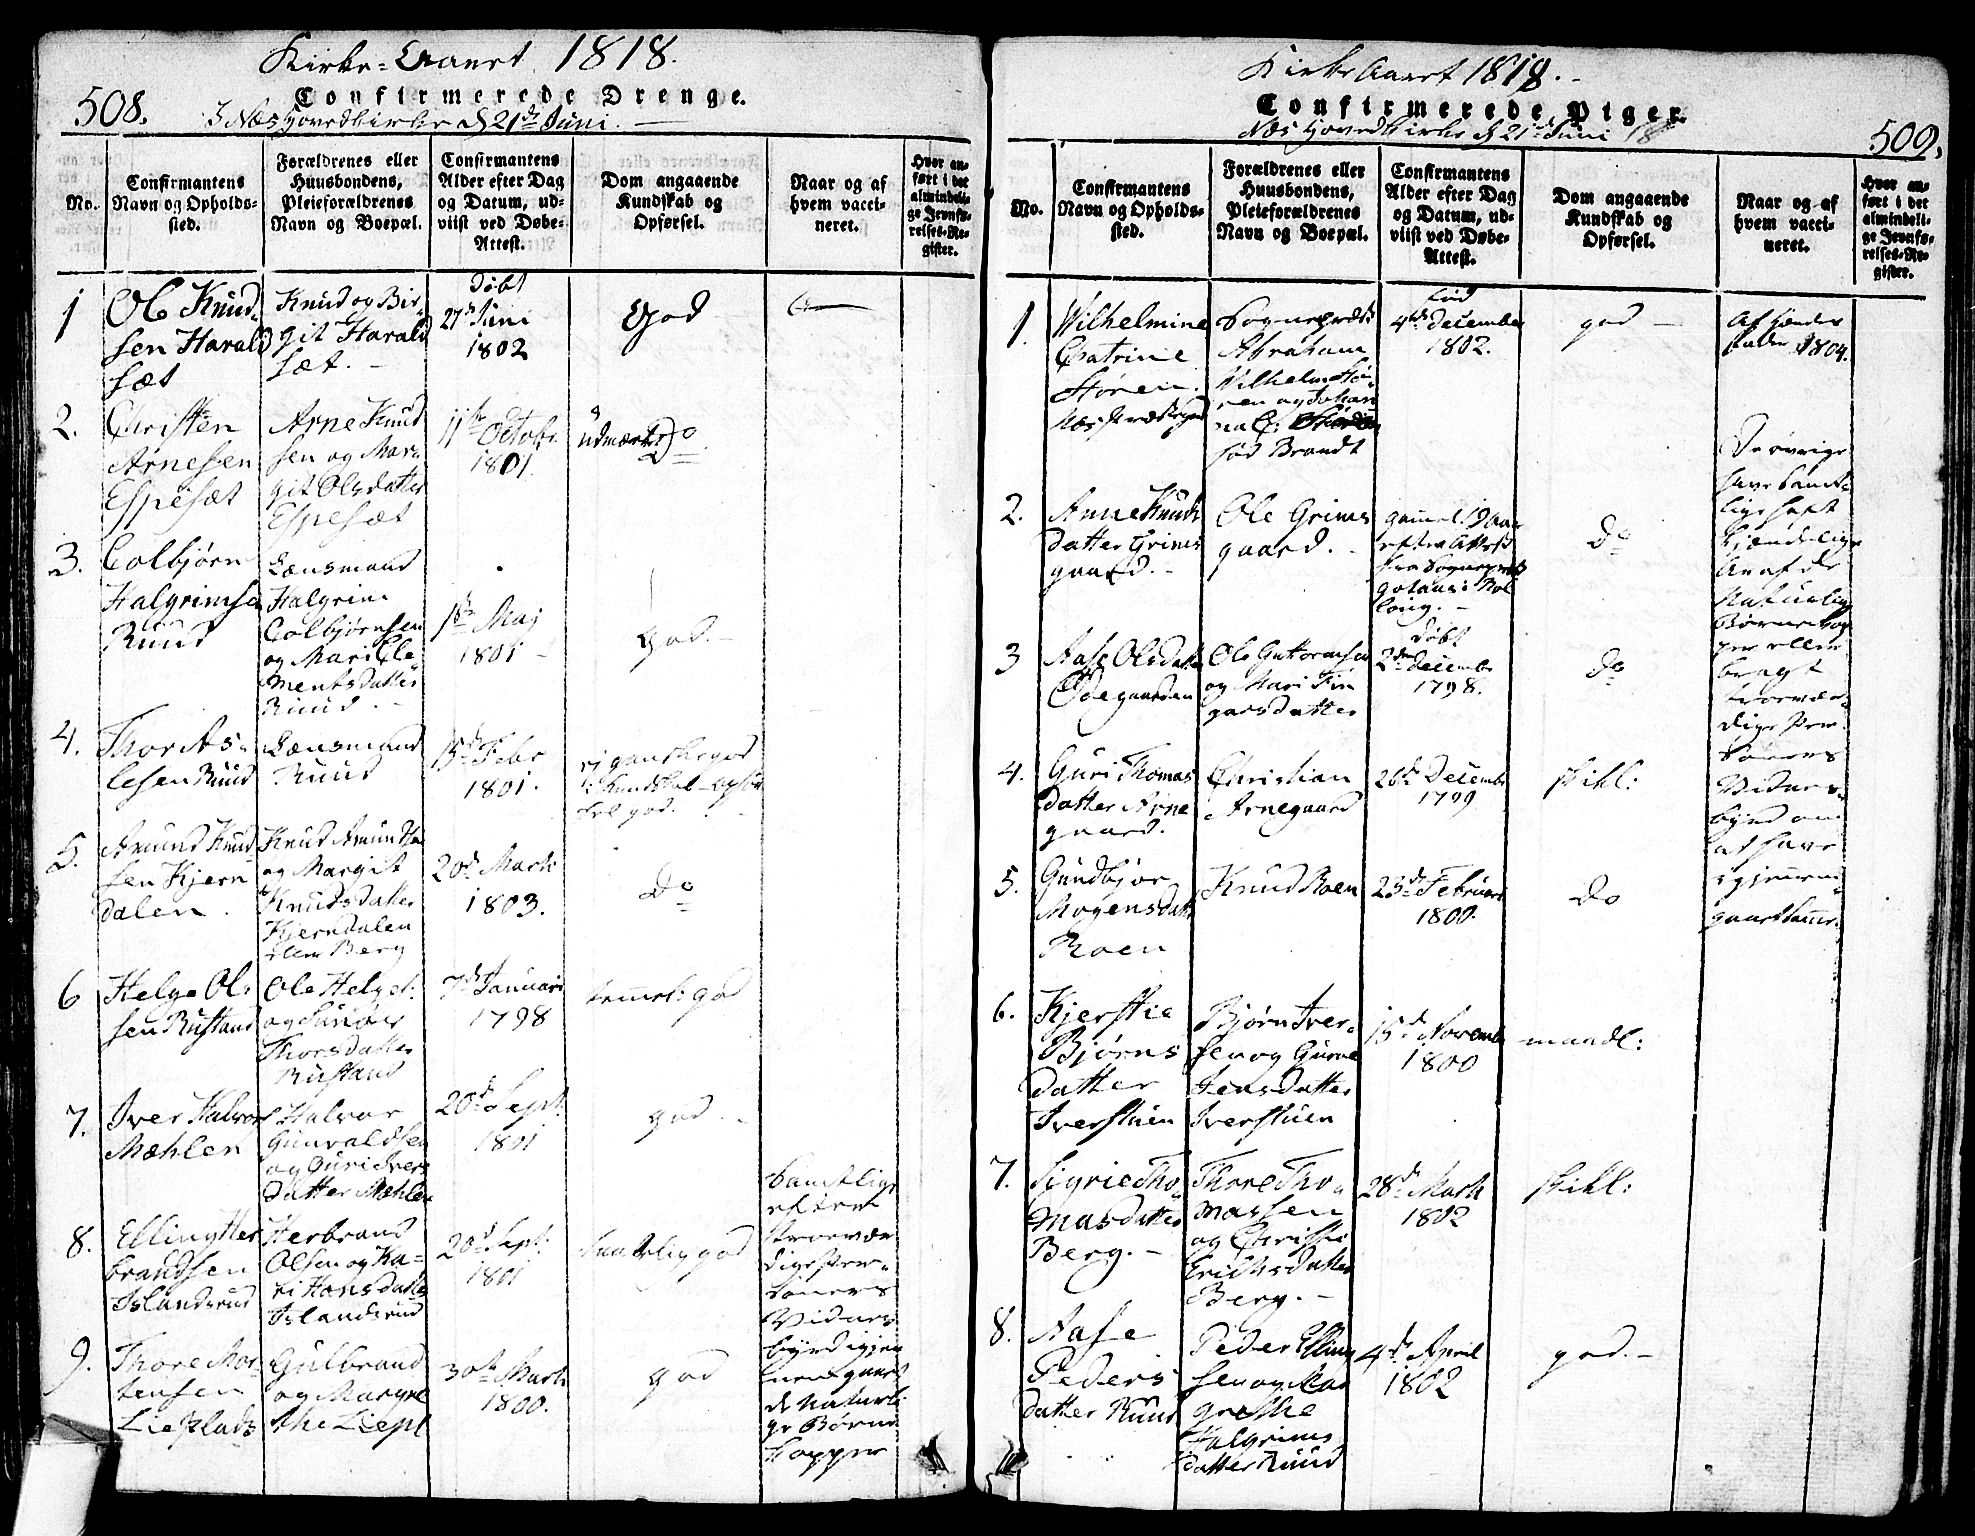 Kirke-Aaret 1818.
508.
Confirmerede Drenge.
I Næs Hovedkirke d 21de Juni.
No.
Confirmantens
Navn og Opholds-
sted.
Forældrenes eller
Huusbondens,
Pleieforældrenes
Navn og Boepæl.
Confirmantens
Alder efter Dag
og Datum, ud-
viist ved Døbe-
Attest.
Dom angaaende
Kundskab og
Opførsel.
Naar og af
hvem vacci-
neret.
Hvor an-
ført i det
almindeli-
ge Jevnfø-
relses-Re-
gister.
1
Ole Knud-
sen Harald
sæt
Knud og Bir-
git Harald
sæt.
døbt
27de Juni
1802
God
2.
Christen
Arnesen
Espesæt
Arne Knud
sen og Mar-
git Olsdatter
Espesæt
11te Octobr
1801.
udmærket Do
3.
Colbjørn
Halgrimsen
Ruud
Lænsmand
Halgrim
Colbjørnsen
og Mari Cle-
mentsdatter
Ruud.
1ste Maj
1801
God.
4.
Thor As-
lesen Ruud
Lænsmand
Ruud
15de Febr
1801.
ej ganske god
i Kundskab - Opfør
sel god.
5.
Amund Knud-
sen Kjern
dalen.
Knud Amundsen
og Margit
Knudsdatter
Kjerndalen
Berg
20de Marts
1803.
Do
6
Helge Ol-
sen Rustand
Ole Helges:
og
Thorsdatter
Rustand
7de Januari
1798
temmel: god
7.
Iver Halvors
Mæhlen
Halvor
Gunvaldsen
og Guri Ivers
datter Mæhlen
20de Sept.
1801
god.
8.
Elling Her
brandsen
Islandsrud
Herbrand
Olsen og Ka-
ri Hansdatter
Islandsrud
20de Sept:
1801
god
9.
Thore Mor-
tensen
Lieplads
Gulbrand
og Margre
the Liepl
30te Marts
1800.
god
Samtlige
efter
troevær
dige Per-
soners
Vidnes
byrd igjen
nemgaaet
de naturli
ge Børne
kopper
Kirke Aaret 1818.
Confirmerede Piger.
Næs Hovedkirke d 21de Juni 18
509.
No.
Confirmantens
Navn og Opholds-
sted.
Forældrenes eller
Huusbondens,
Pleieforældrenes
Navn og Boepæl.
Confirmantens
Alder efter Dag
og Datum, ud-
viist ved Døbe-
Attest.
Dom angaaende
Kundskab og
Opførsel.
Naar og af
hvem vacci-
neret.
Hvor an-
ført i det
almindeli-
ge Jevnfø-
relses-Re-
gister.
1.
Wilhelmine
Catrine
Støren.
Næs Præstegrd
Sognepræst
Abraham
Wilhelm Stø-
ren og Johan
na C:
fød Brandt
fød
4de December
1802.
god
Af hendes
fader 1804.
2.
Anne Knuds
datter Grims
gaard.
Ole Grims
gaard.
gammel 19 aar
efter Attest
fra Sognepræst
i Nol
Do
3
Aase Olsdatter
Ødegaarden
Ole Guttormsen
og Mari Fin
garsdatter
døbt
2den Decembr
1798.
Do
4.
Guri Thomas
datter Arne
gaard.
Christian
Arnegaard
26de Decembr
1799
skikl:
5.
Gundbjør
Mogensdatter
Roen
Knud Roen
23de Februari
1800.
Do
6.
Kjerstie
Bjørns
datter
Iverstuen
Bjørn Iver-
sen og Gurine
Jensdatter
Iverstuen
15de Novembr
1800
maadl:
7.
Sigrie Tho-
masdatter
Berg.
Thore Tho-
massen
og Christi
Erichsdatter
Berg.
28de Marts
1802
skikl:
8.
Aase
Peders
datter Ruud
Peder Elling
sen og Mar
grethe
Halgrims
datter Ruud
4de April
1802
god.
De øvrige
have samt-
lige haft
kjendelige
Ar af de
naturlige
Børnekop
per eller
bragt
troevær-
dige Per-
soners
Vidnes-
byrd om
at have
igjennem-
gaaet samme.